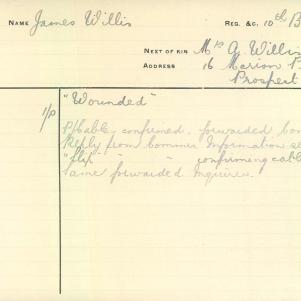 NAME James Willis
REG. &C. 10th B
NEXT OF KIN Mrs A. Willis
ADDRESS 16 Marion P
Prospect
1/P "Wounded"
confirmed. forwarded
Reply from Information
" " confirming cabl
Same forwarded Inquirer.